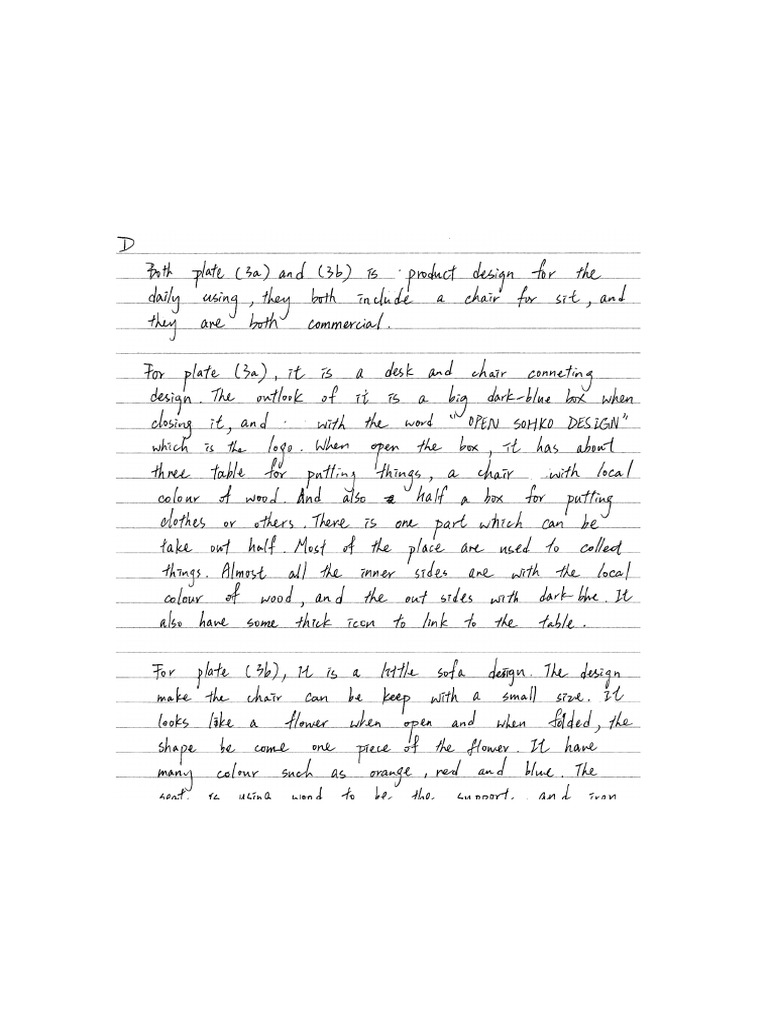 D
Both plate (3a) and (3b) is product design for the
daily using, they both include a chair for sit, and
they are both commercial.
For plate (3a), it is a desk and chair conneting
design. The outlook of it is a big dark-blue box when
closing it, and with the word "OPEN SOHKO DESIGN"
which is the logo. When open the box, it has about
three table for putting things, a chair with local
colour of wood. And also half a box for putting
clothes or others. There is one part which can be
take out half. Most of the place are used to collect
things. Almost all the inner sides are with the local
colour of wood, and the out sides with dark-blue. It
also have some thick icon to link to the table.
For plate (3b), It is a little sofa design. The design
make the chair can be keep with a small size. It
looks like a flower when open and when folded, the
shape be come one piece of the flower. It have
many colour such as orange, red and blue. The
seat is using wood to be the support, and iron